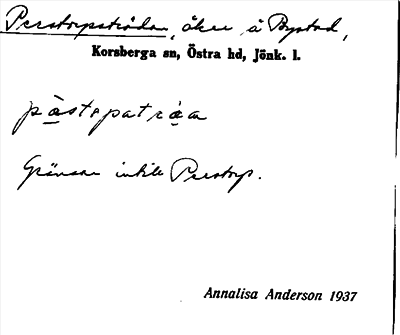 Perstorpsträdan, åker å Bystad,
Korsberga sn, Östra hd, Jönk. l.
pàstəpatràa
Gränsar intill Perstorp.
Annalisa Anderson 1937